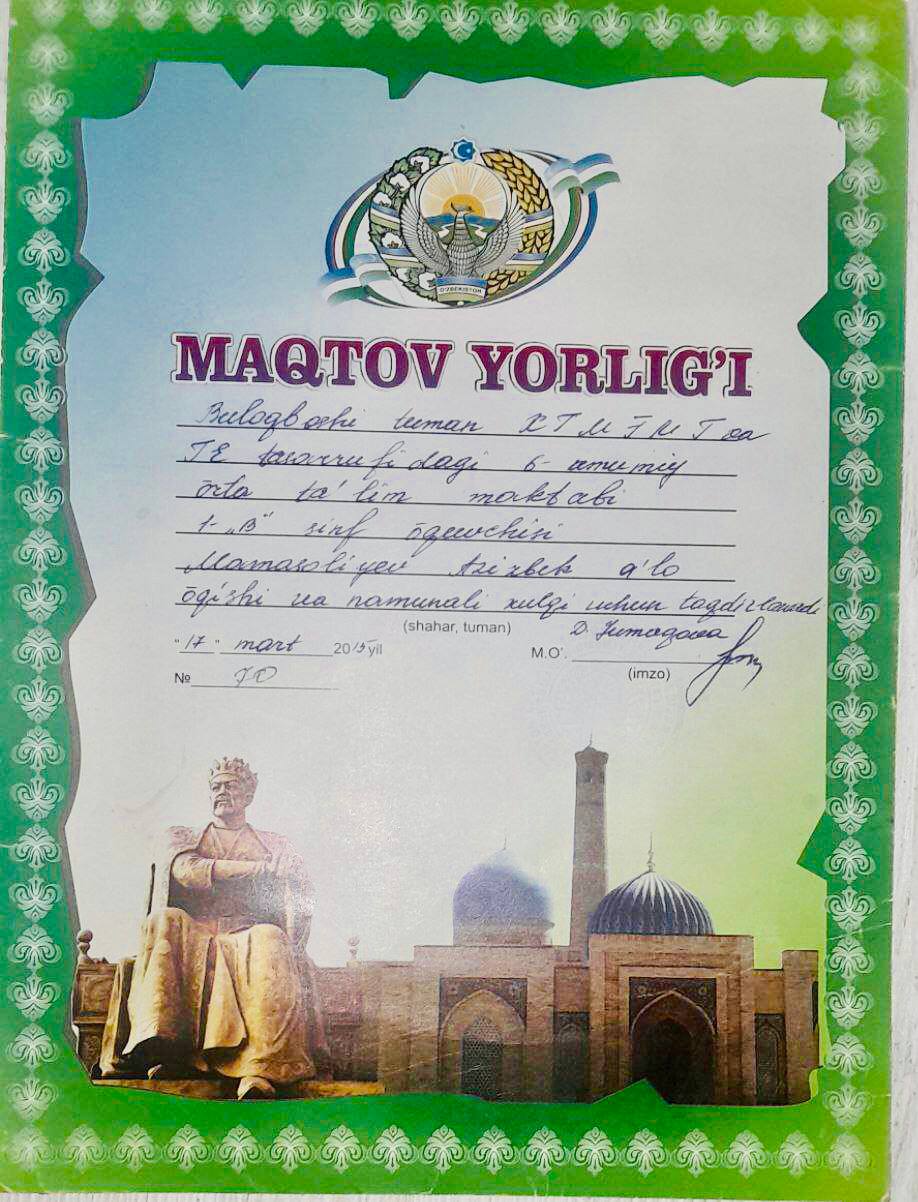 O'ZBEKISTON
MAQTOV YORLIG'I
Buloqboshi tuman XTMFMT va
TE tasarrufidagi 6-umumiy
ōrta ta'lim maktabi
1-„B" sinf ōquvchisi
Mamasoliyev Azizbek a'lo
ōqishi va namunali xulqi uchun taqdirlanadi
(shahar, tuman)
D. Jumaqova
"17" mart 2015 yil
M.O'.
(imzo)
№ 70